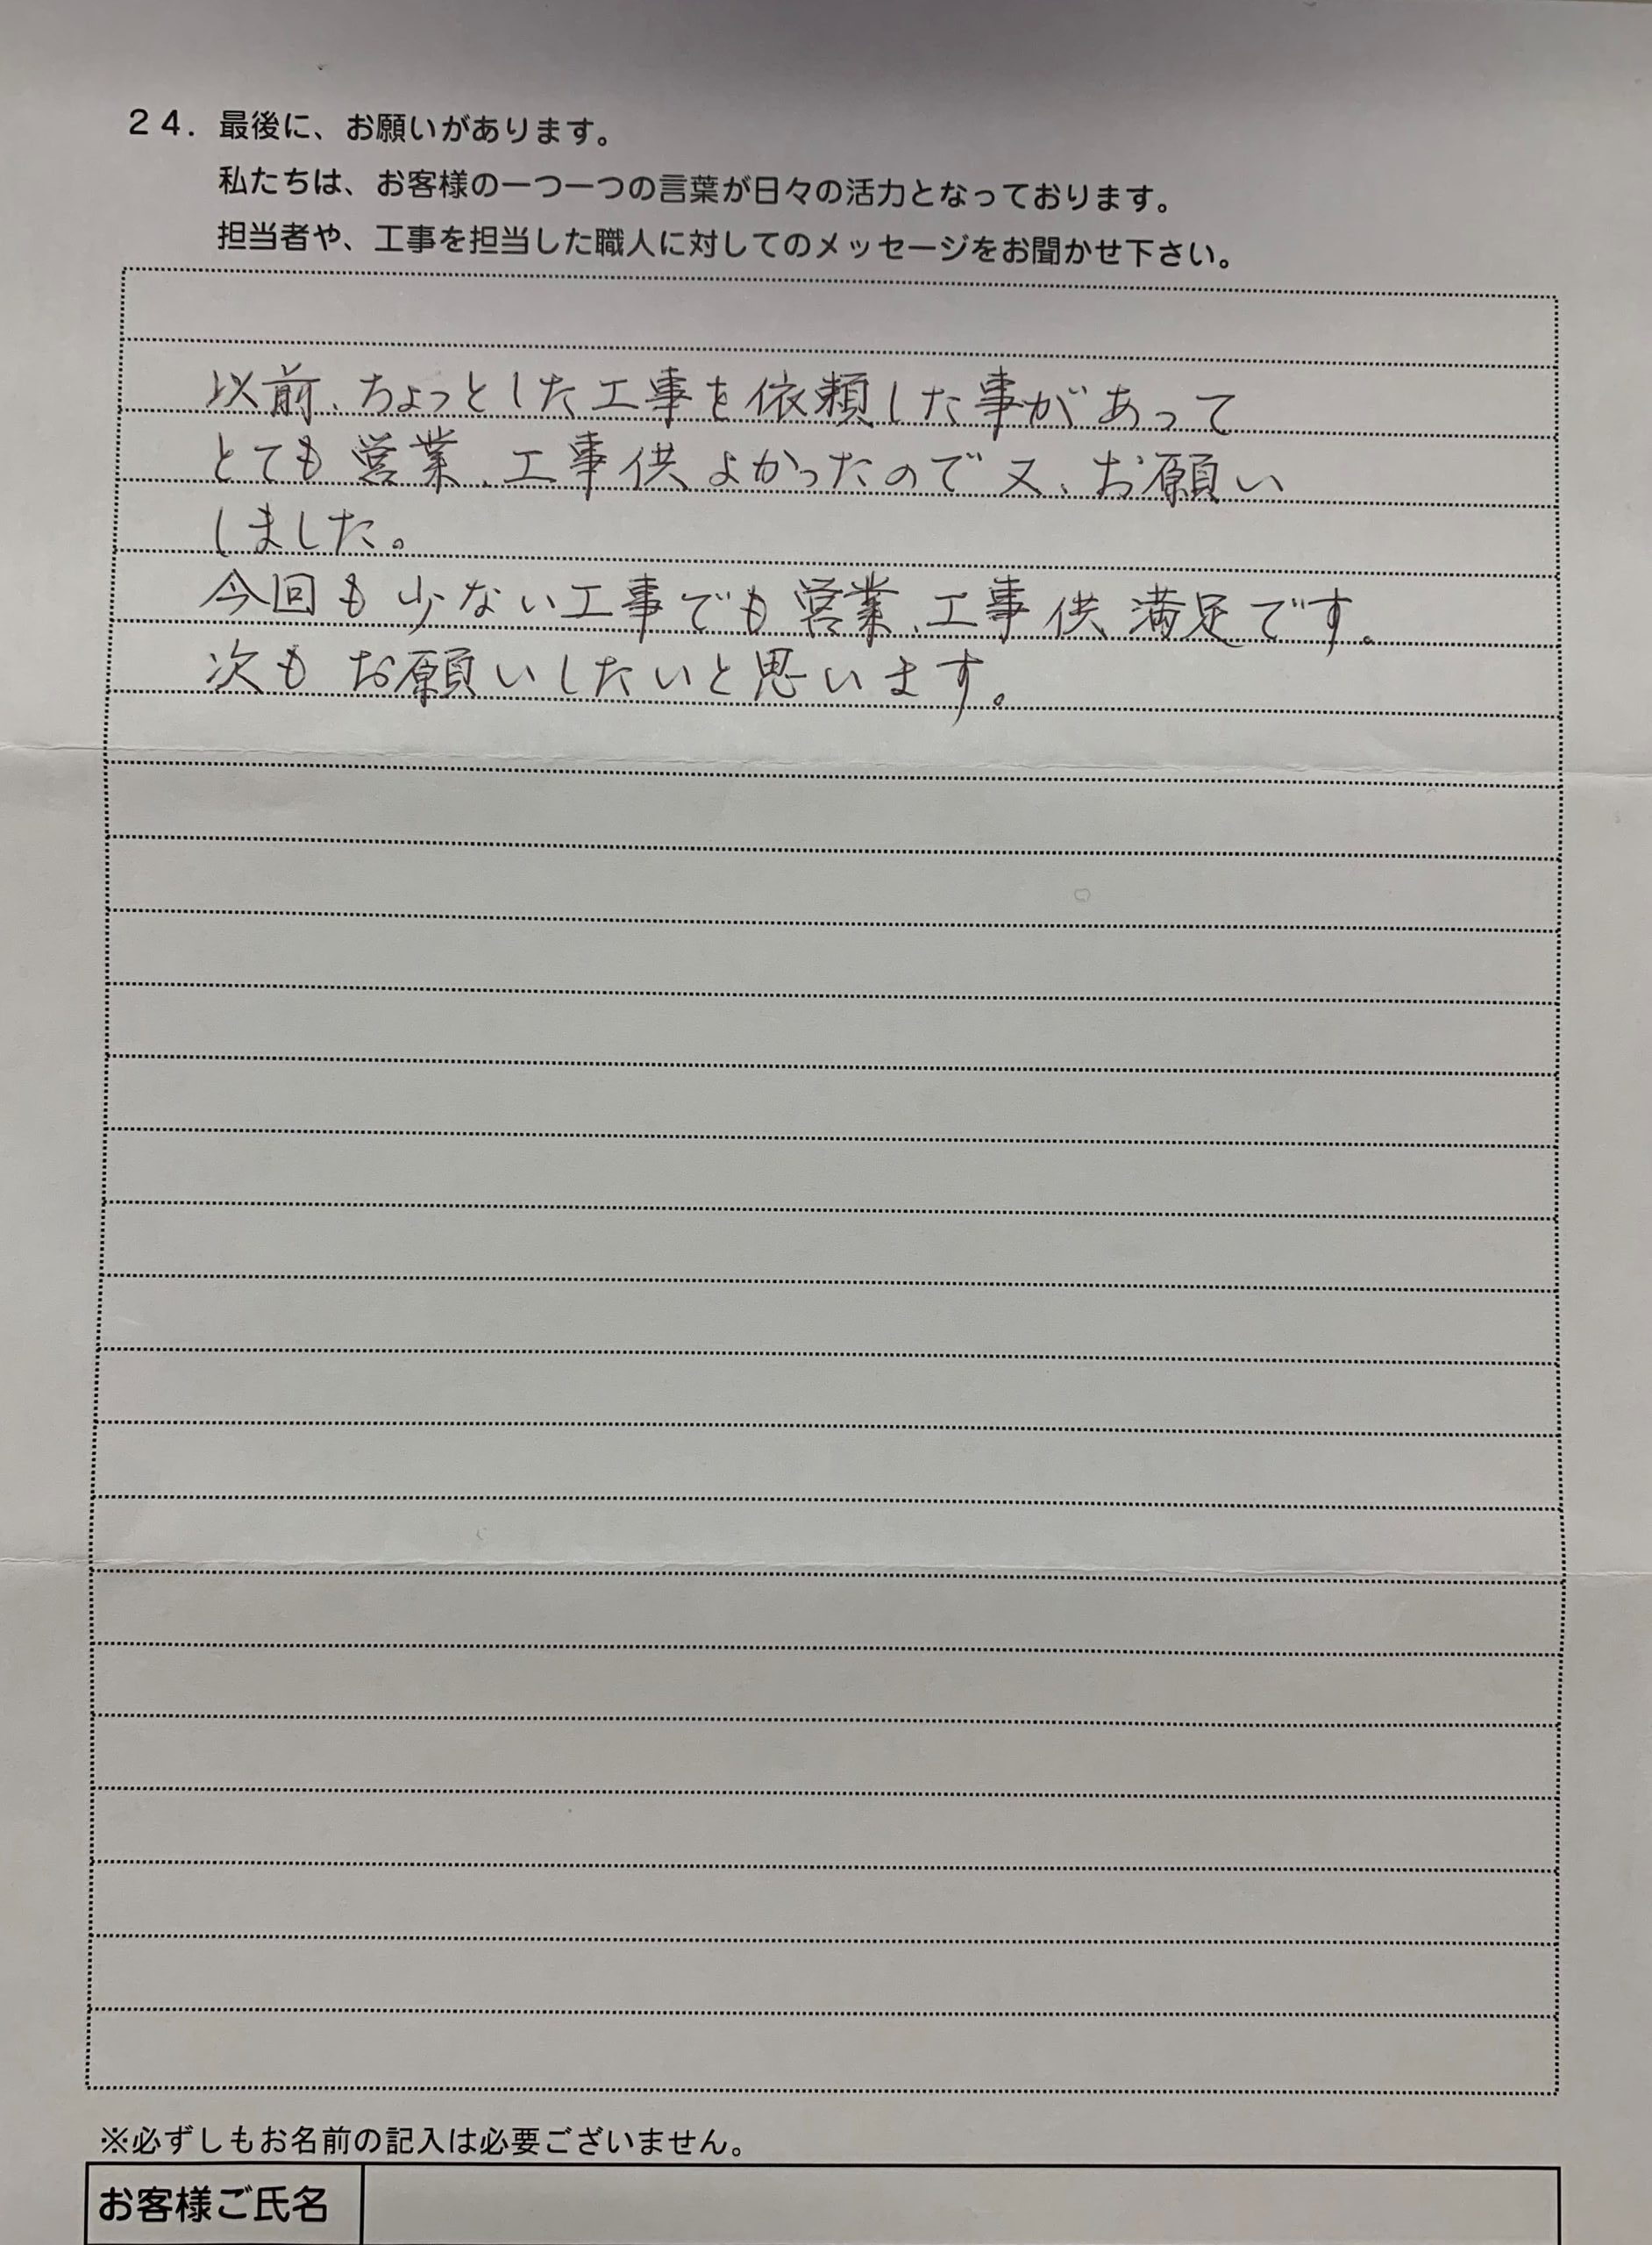 24. 最後に、お願いがあります。
私たちは、お客様の一つ一つの言葉が日々の活力となっております。
担当者や、工事を担当した職人に対してのメッセージをお聞かせ下さい。
以前、ちょっとした工事を依頼した事があって
とても営業、工事供よかったので又、お願い
しました。
今回も少ない工事でも営業、工事供満足です。
次もお願いしたいと思います。
※必ずしもお名前の記入は必要ございません。
お客様ご氏名